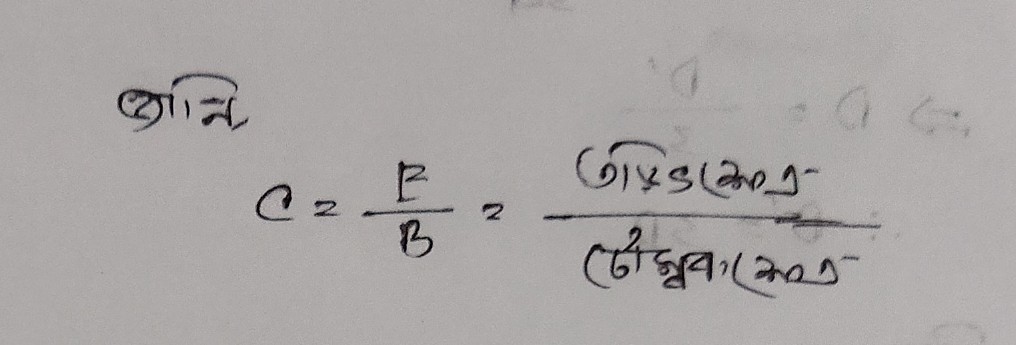 জানি,
C = E/B = তড়িৎক্ষেত্র / চৌম্বকক্ষেত্র